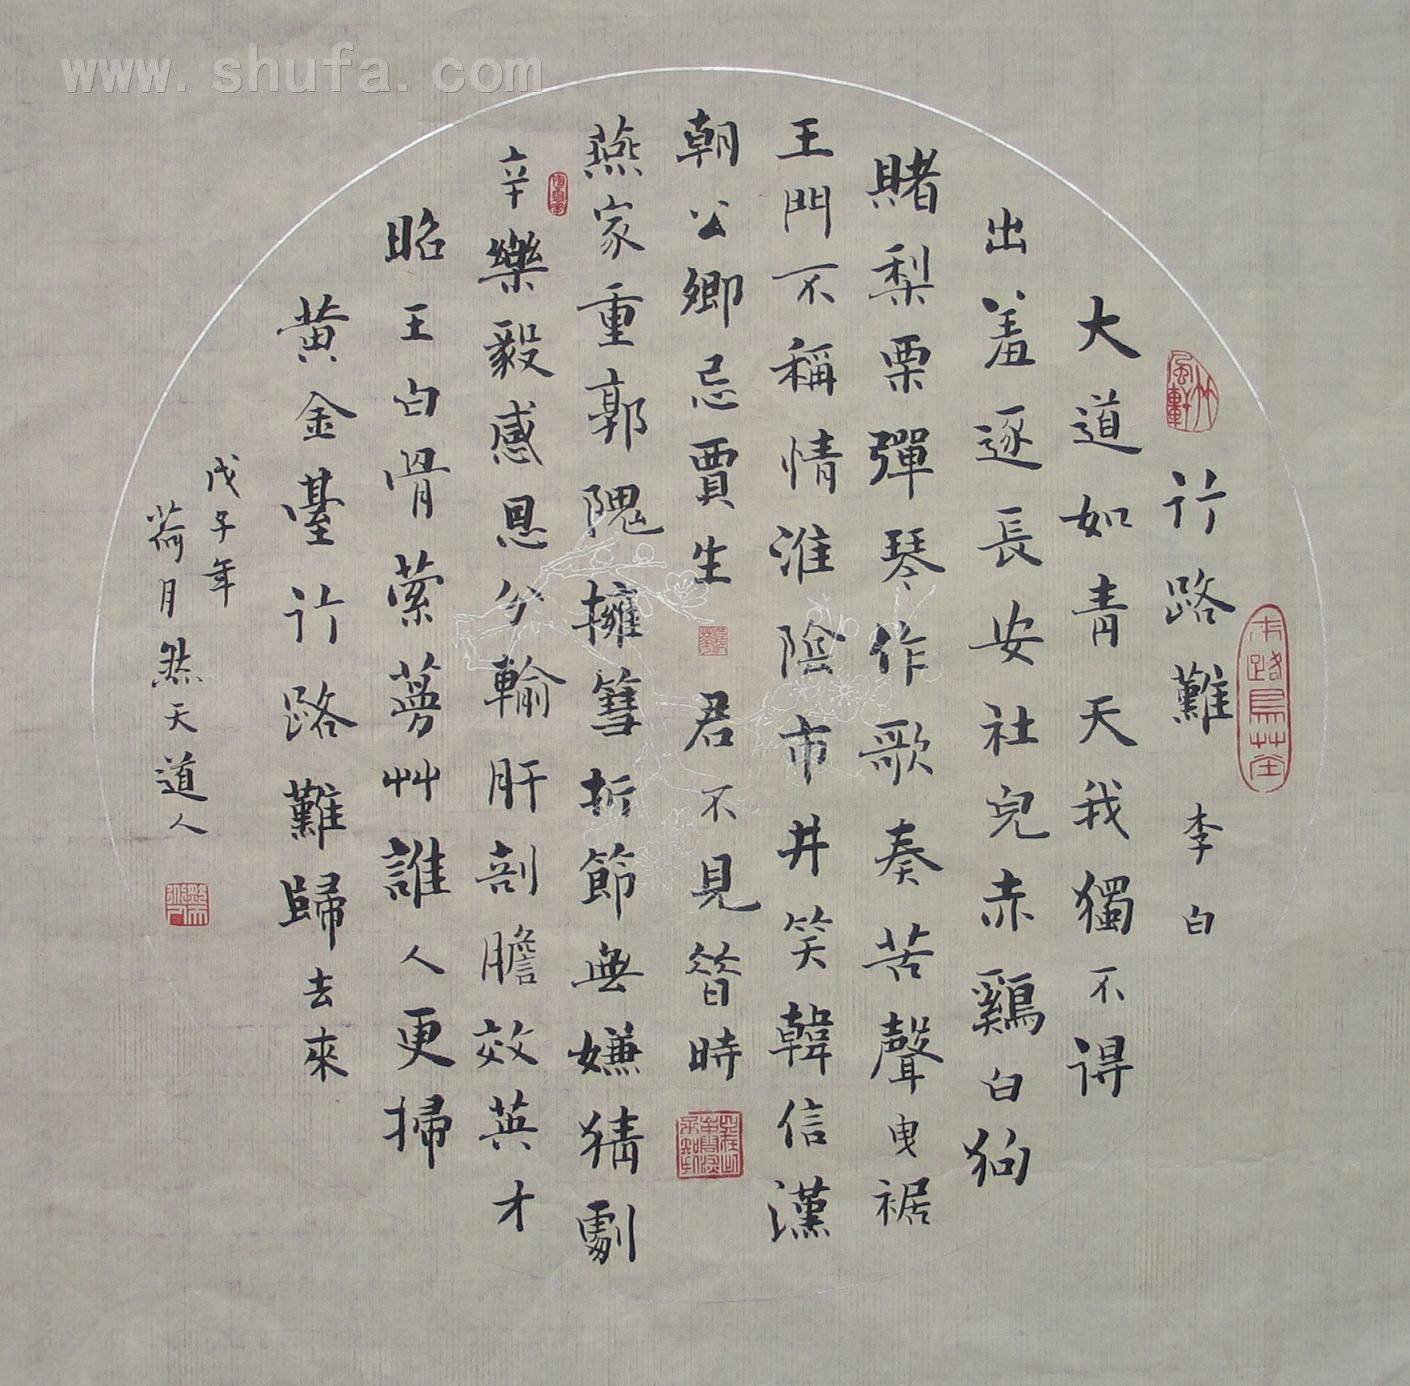 www.shufa.com
行路難 李白
大道如青天我獨不得
出羞逐長安社兒赤鷄白狗
賭梨栗彈琴作歌奏苦聲曳裾
王門不稱情淮陰市井笑韓信漢
朝公卿忌賈生君不見昝時
燕家重郭隗擁篲折節無嫌猜劇
辛樂毅感恩分輸肝剖膽效英才
昭王白骨縈蔓艸誰人更掃
黄金臺行路難歸去來
戊子年
荷月然天道人